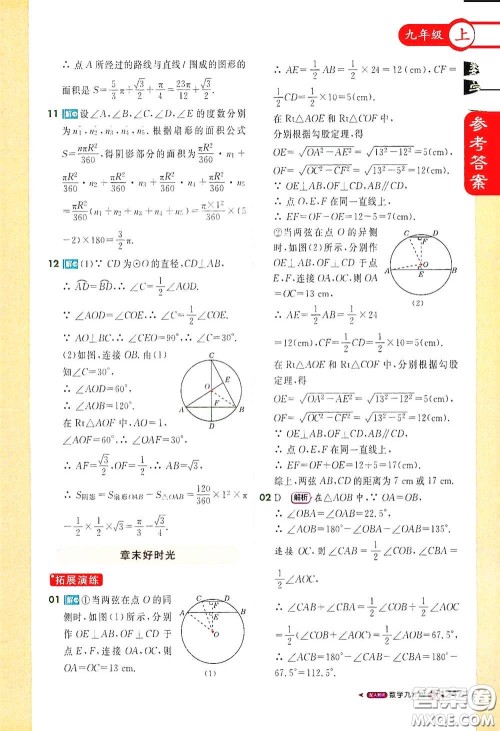 九年级 上
参考答案
∴ 点 A 所经过的路线与直线 l 围成的图形的
面积是 S=5/3π+√3/2+π/4=23π/12+√3/2.
11 解 设∠A、∠B、∠C、∠D、∠E 的度数分别
为 n₁°、n₂°、n₃°、n₄°、n₅°,根据扇形的面积公式
S=nπR²/360,得阴影部分的面积为 πR²/360·n₁+
πR²/360·n₂+πR²/360·n₃+πR²/360·n₄+πR²/360·n₅
=πR²/360(n₁+n₂+n₃+n₄+n₅)=π×1²/360×(5
-2)×180=3/2π.
12 解 (1)∵ CD 为⊙O 的直径,CD⊥AB,
∴ AD=BD.∴ ∠C=1/2∠AOD.
∵ ∠AOD=∠COE,∴ ∠C=1/2∠COE.
∵ AO⊥BC,∴ ∠CEO=90°.∴ ∠C=30°.
(2)如图,连接 OB,由(1)
知∠C=30°,
∴ ∠AOD=60°,
∴ ∠AOB=120°.
在 Rt△AOF 中,AO=1,
∠AOF=60°,∴ ∠OAF=30°.
∴ AF=√3/2,OF=1/2.∴ AB=√3.
∴ S阴影=S扇形OAB-S△OAB=120/360×1²×π
-1/2×1/2×√3=π/3-√3/4.
C
E
O
A
F
B
D
章末好时光
拓展演练
01 解 ①当两弦在点 O 的同
侧时,如图(1)所示,分别
作 OE⊥AB,OF⊥CD 于
点 E,F,连接 OA,OC,则
OA=OC=13 cm.
C
F
D
A
E
B
O
(1)
∴ AE=1/2AB=1/2×24=12(cm),CF=
1/2CD=1/2×10=5(cm).
在 Rt△AOE 和 Rt△COF 中,
分别根据勾股定理,得
OE=√OA²-AE²=√13²-12²=5(cm),
OF=√OC²-CF²=√13²-5²=12(cm).
∵ OE⊥AB,OF⊥CD,AB∥CD,
∴ 点 O,E,F 在同一直线上.
∴ EF=OF-OE=12-5=7(cm);
②当两弦在点 O 的异侧
时,如图(2)所示,分别作
OE⊥AB,OF⊥CD 于点
E,F,连接 OA,OC,则 OA
=OC=13 cm,
C
F
D
O
A
E
B
(2)
∴ AE=1/2AB=1/2×24=12(cm),
CF=1/2CD=1/2×10=5(cm).
在 Rt△AOE 和 Rt△COF 中,分别根据勾股
定理,得
OE=√OA²-AE²=√13²-12²=5(cm),
OF=√OC²-CF²=√13²-5²=12(cm).
∵ OE⊥AB,OF⊥CD,AB∥CD,
∴ 点 O,E,F 在同一直线上.
∴ EF=OF+OE=12+5=17(cm).
综上,两弦 AB,CD 的距离为 7 cm 或 17 cm.
02 D 解析 在△AOB 中,∵ OA=OB,
∴ ∠OAB=∠OBA=22.5°,
∴ ∠AOB=180°-∠OAB-∠OBA=135°.
连接 OC,则∠CAB=1/2∠COB,∠CBA=
1/2∠COA,
∴ ∠CAB+∠CBA=1/2∠COB+1/2∠COA
=1/2∠AOB=67.5°.
又∵ ∠CAB+∠CBA+∠C=180°,
∴ ∠C=180°-(∠CAB+∠CBA)=180°-
67.5°=112.5°.
配人教版 数学九